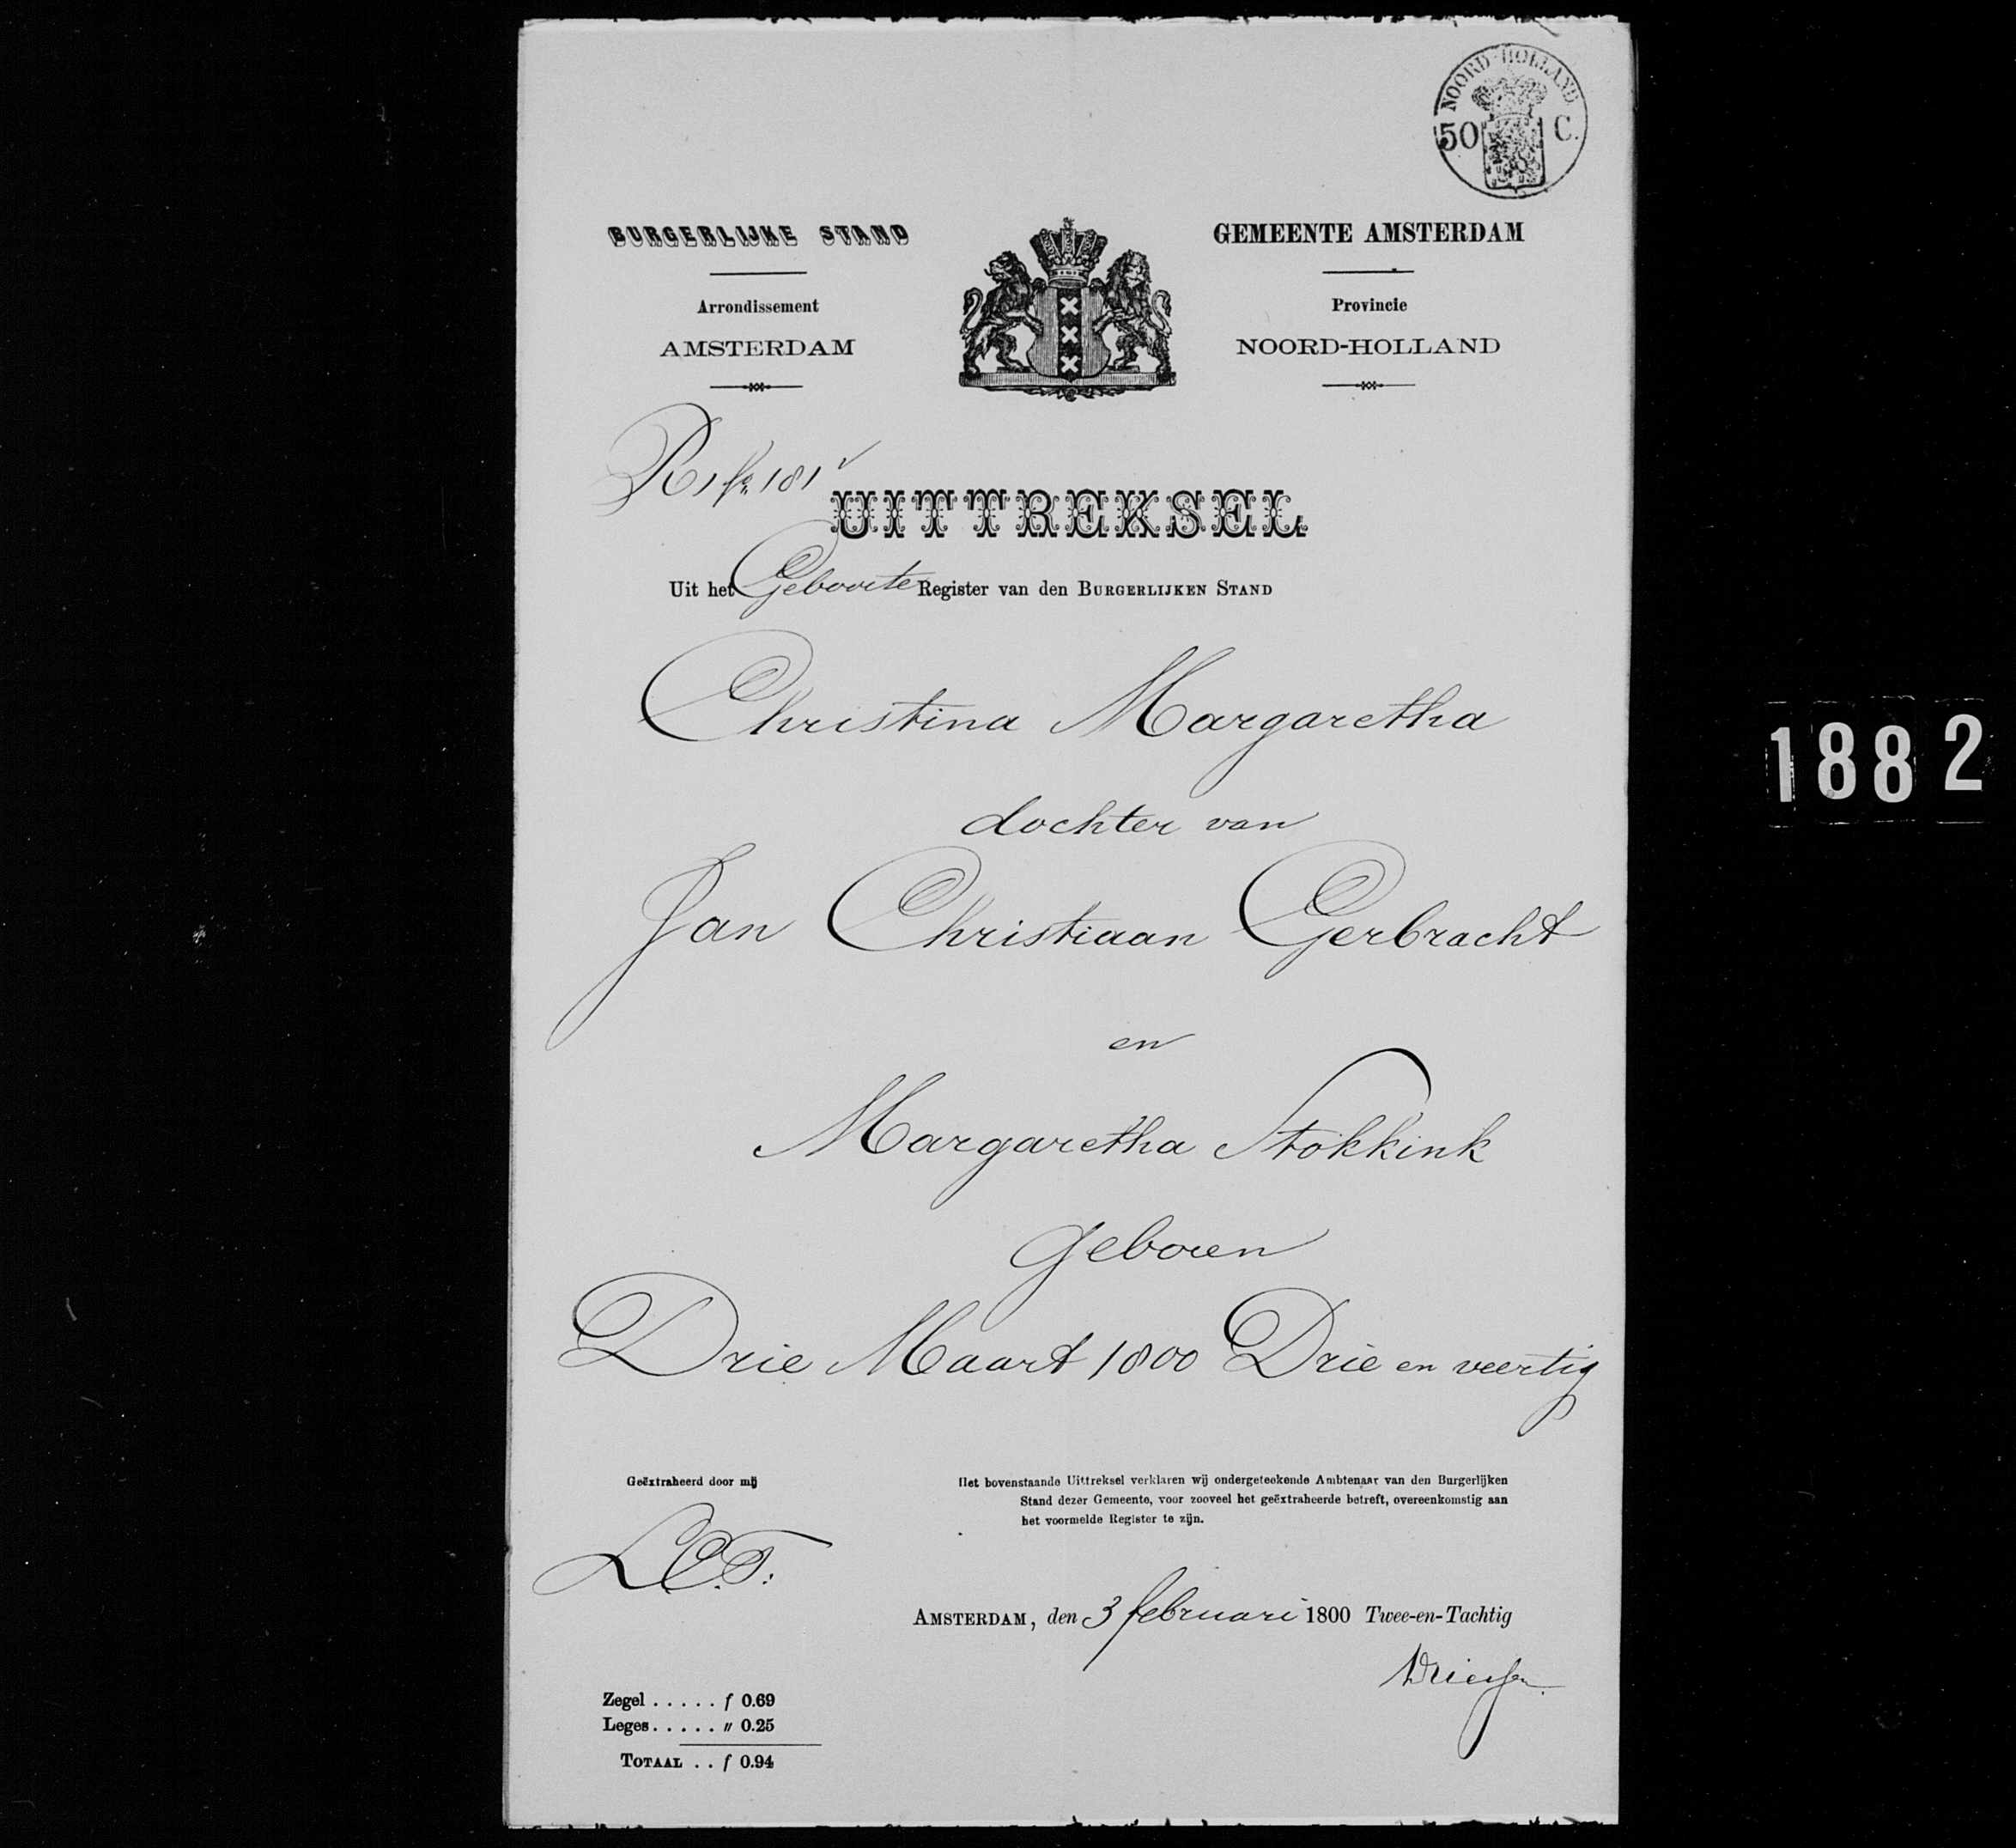 NOORD-HOLLAND
50 C.
BURGERLIJKE STAND
Arrondissement
AMSTERDAM
GEMEENTE AMSTERDAM
Provincie
NOORD-HOLLAND
R 1 fo 181 v
UITTREKSEL
Uit het Geboorte Register van den BURGERLIJKEN STAND
Christina Margaretha
dochter van
Jan Christiaan Gerbracht
en
Margaretha Stokkink
Geboren
Drie Maart 1800 Drie en veertig
Geëxtraheerd door mij
Het bovenstaande Uittreksel verklaren wij ondergeteekende Ambtenaar van den Burgerlijken
Stand dezer Gemeente, voor zooveel het geëxtraheerde betreft, overeenkomstig aan
het voormelde Register te zijn.
AMSTERDAM, den 3 februari 1800 Twee-en-Tachtig
Zegel . . . . . f 0.69
Leges . . . . . " 0.25
TOTAAL . . f 0.94
1882